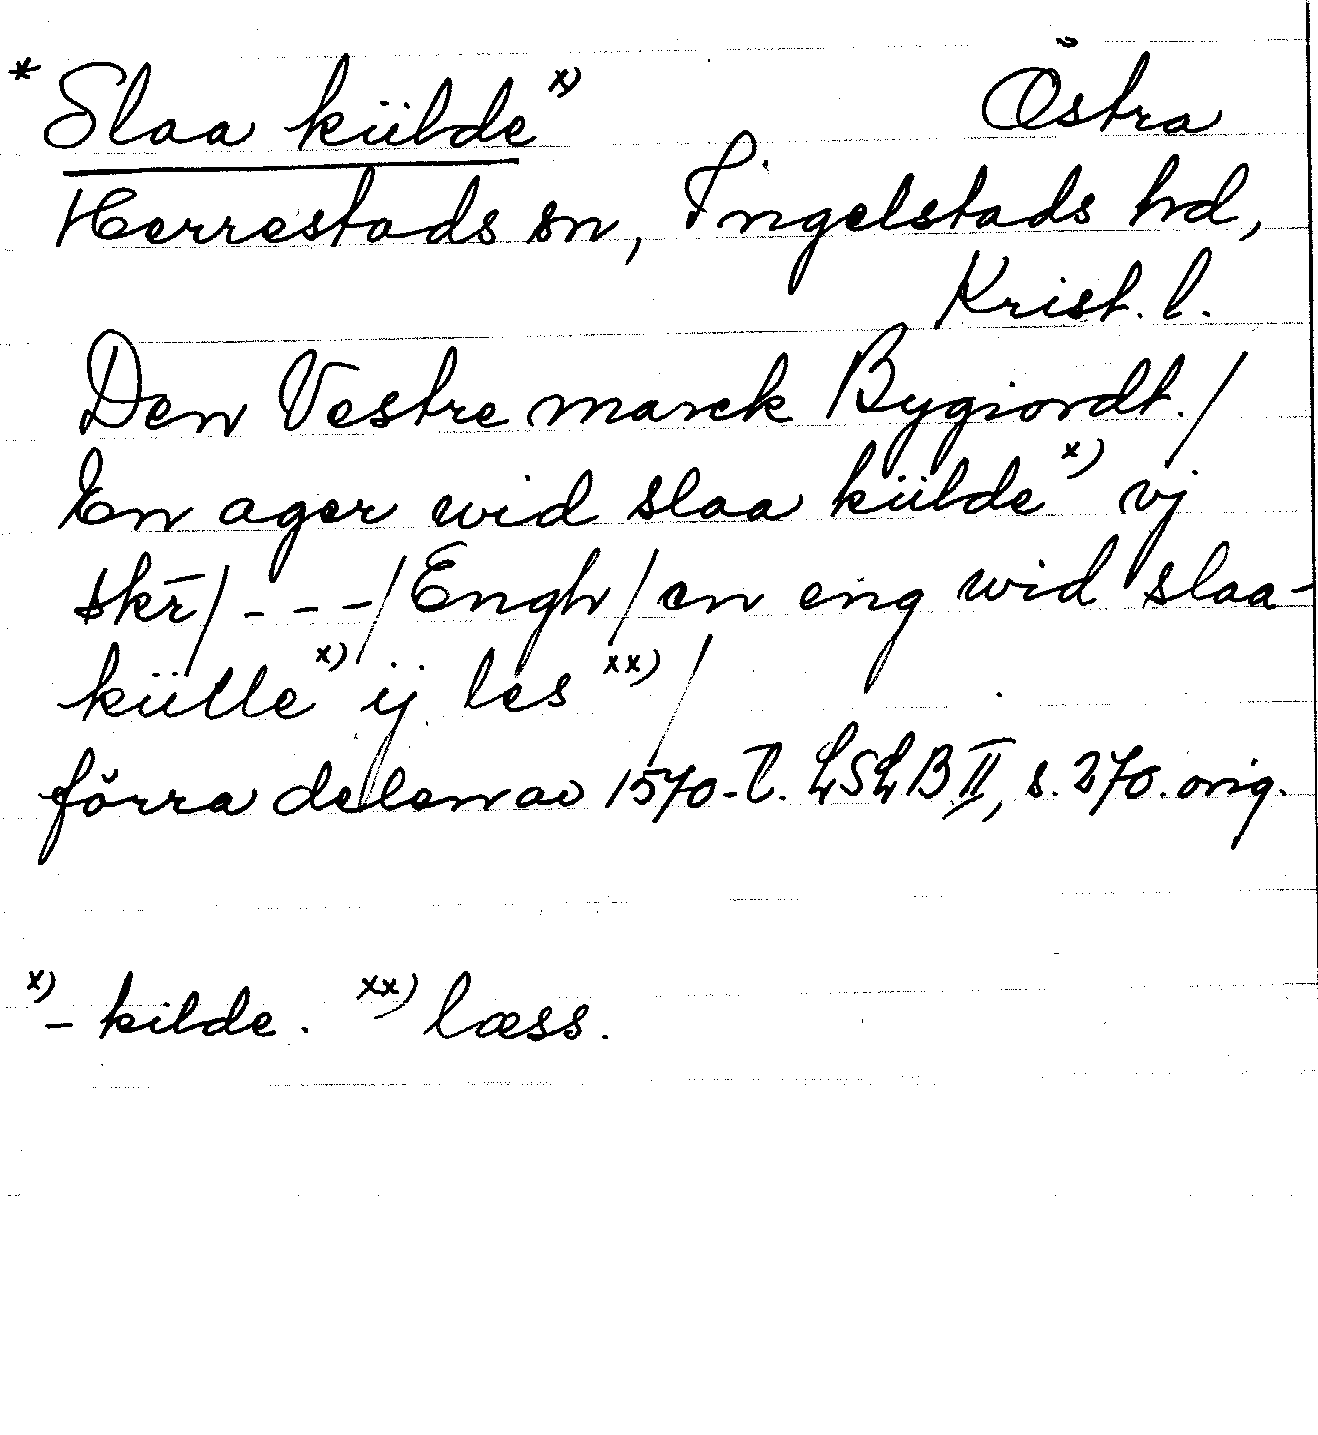 * Slaa külde x) Östra
Herrestads sn, Ingelstads hd,
Krist. l.
Den Vestre marck Bygiordt. /
En ager wid slaa külde x) vj
skr̄ / - - - / Engh / en eng wid slaa-
külle x) ij les xx) /
förra delen av 1570-t. LSLB II, s. 270. orig.
x) - kilde. xx) læss.